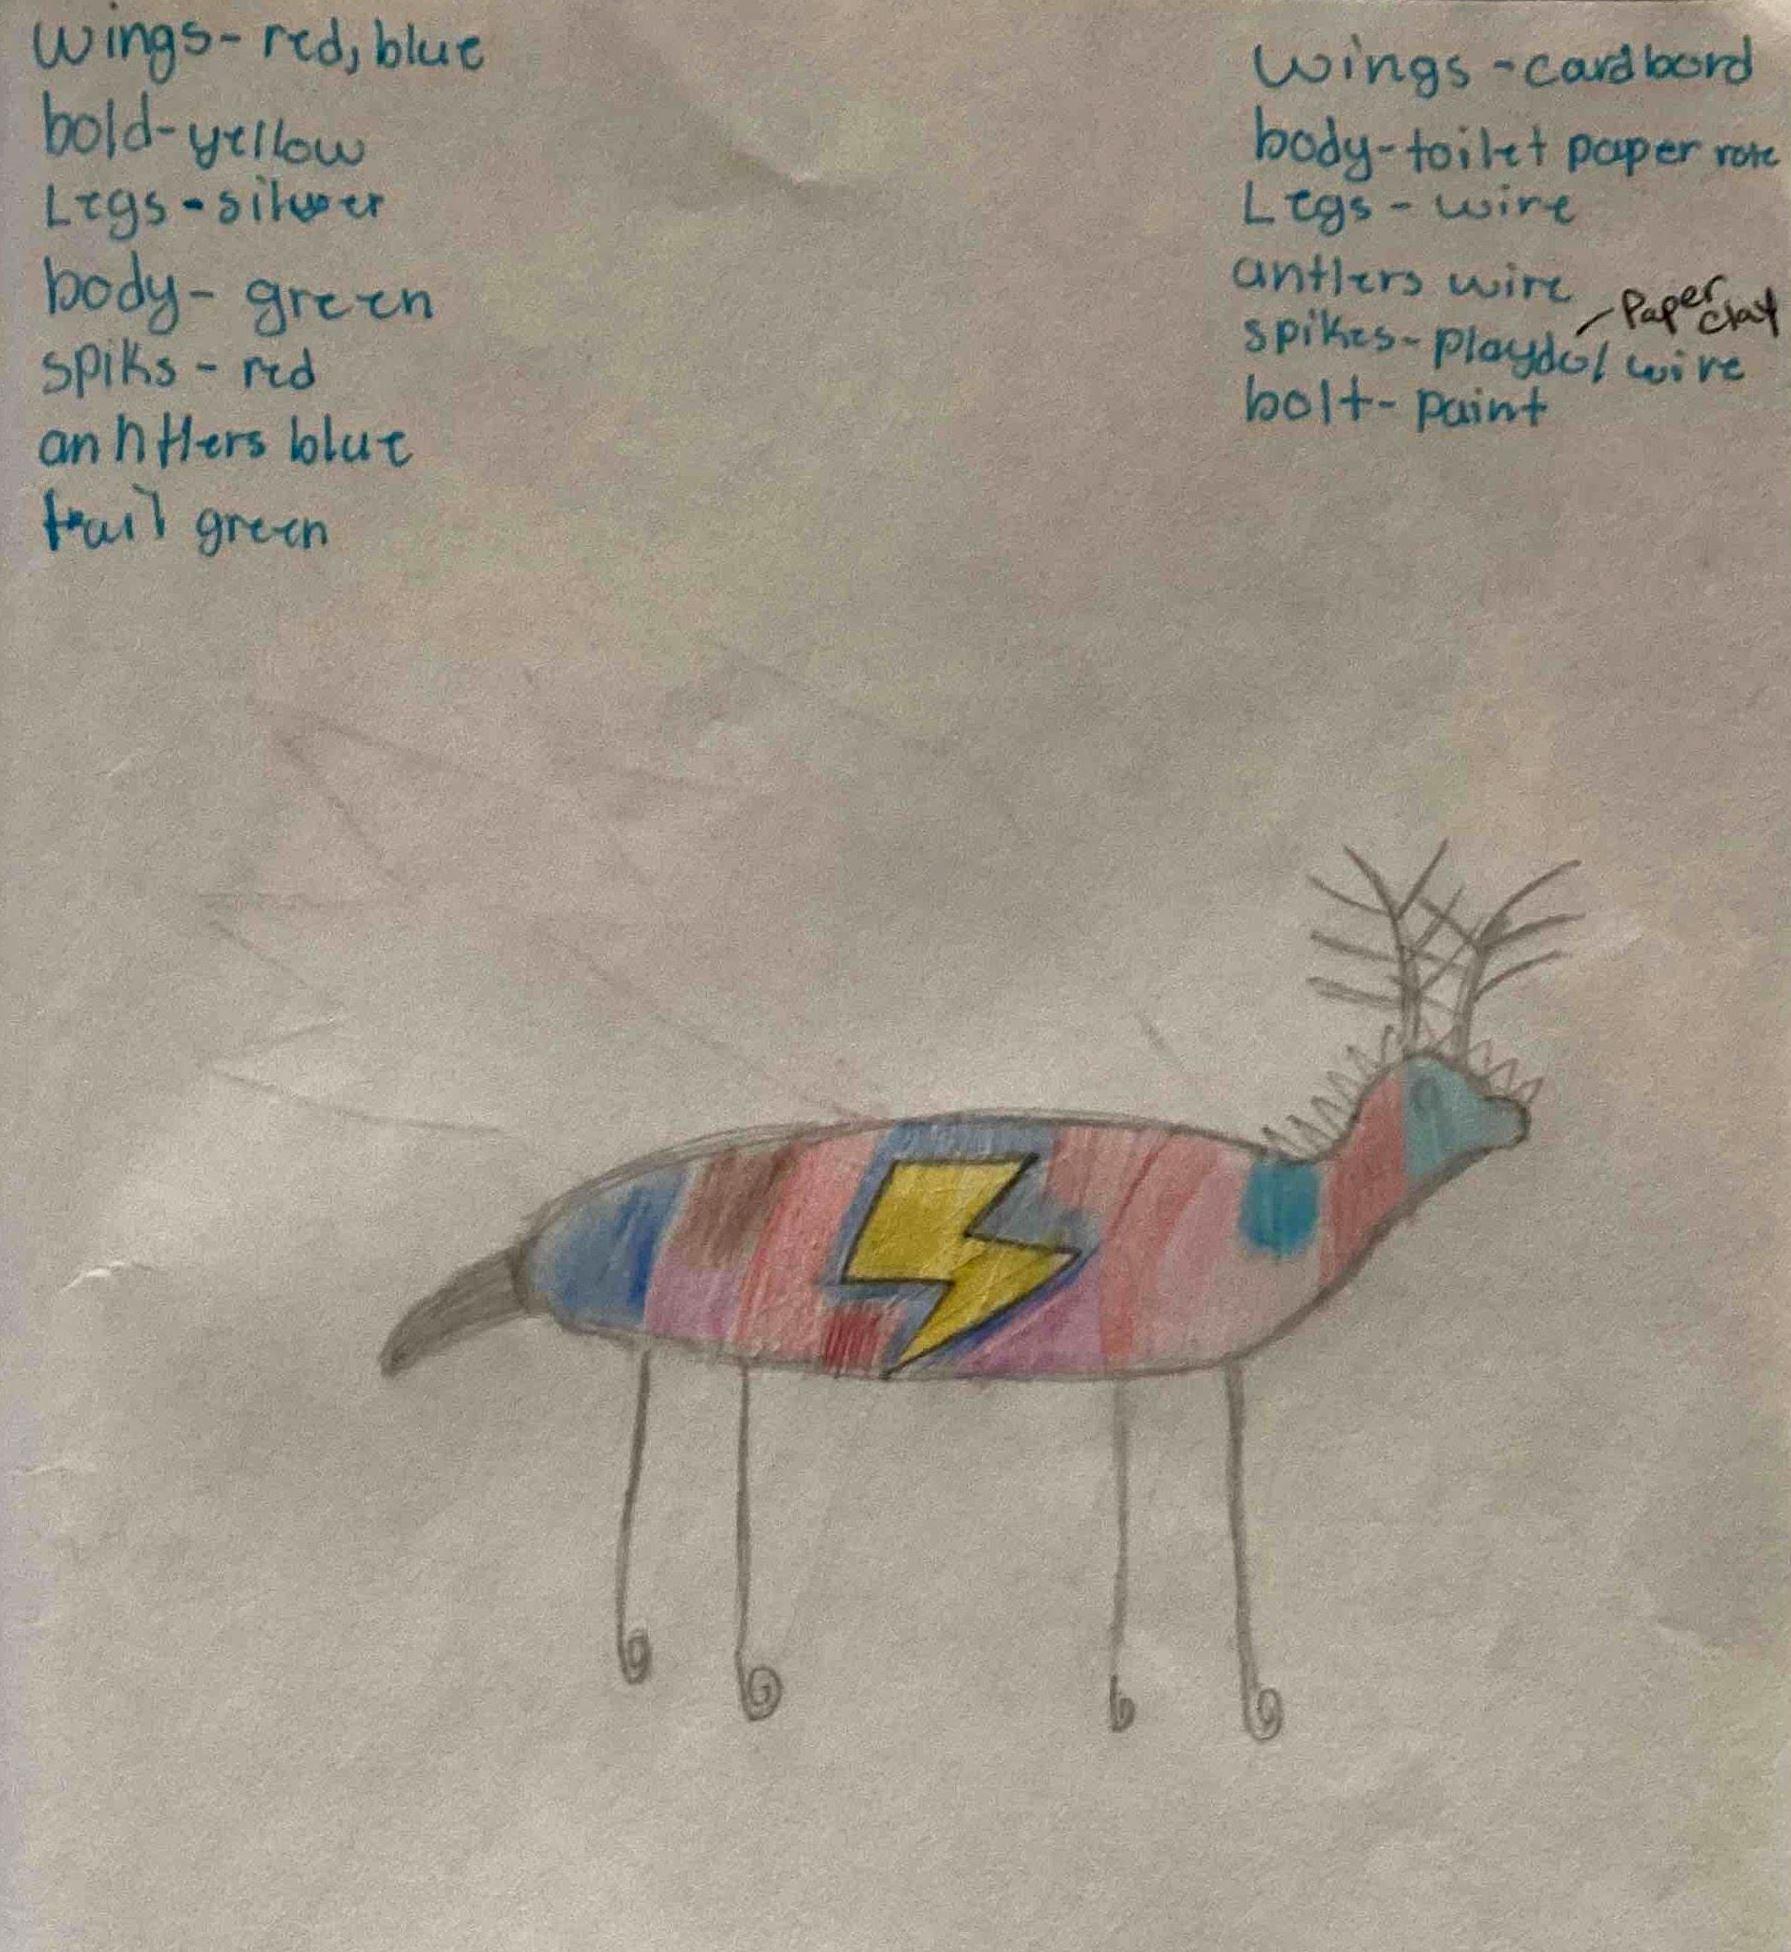 wings-red, blue
bold-yellow
Legs-silver
body- green
spiks - red
anhtlers blue
tail green
wings -cardbord
body-toilet paper role
Legs - wire
antlers wire
Paper clay
spikes- playdo/ wire
bolt- paint